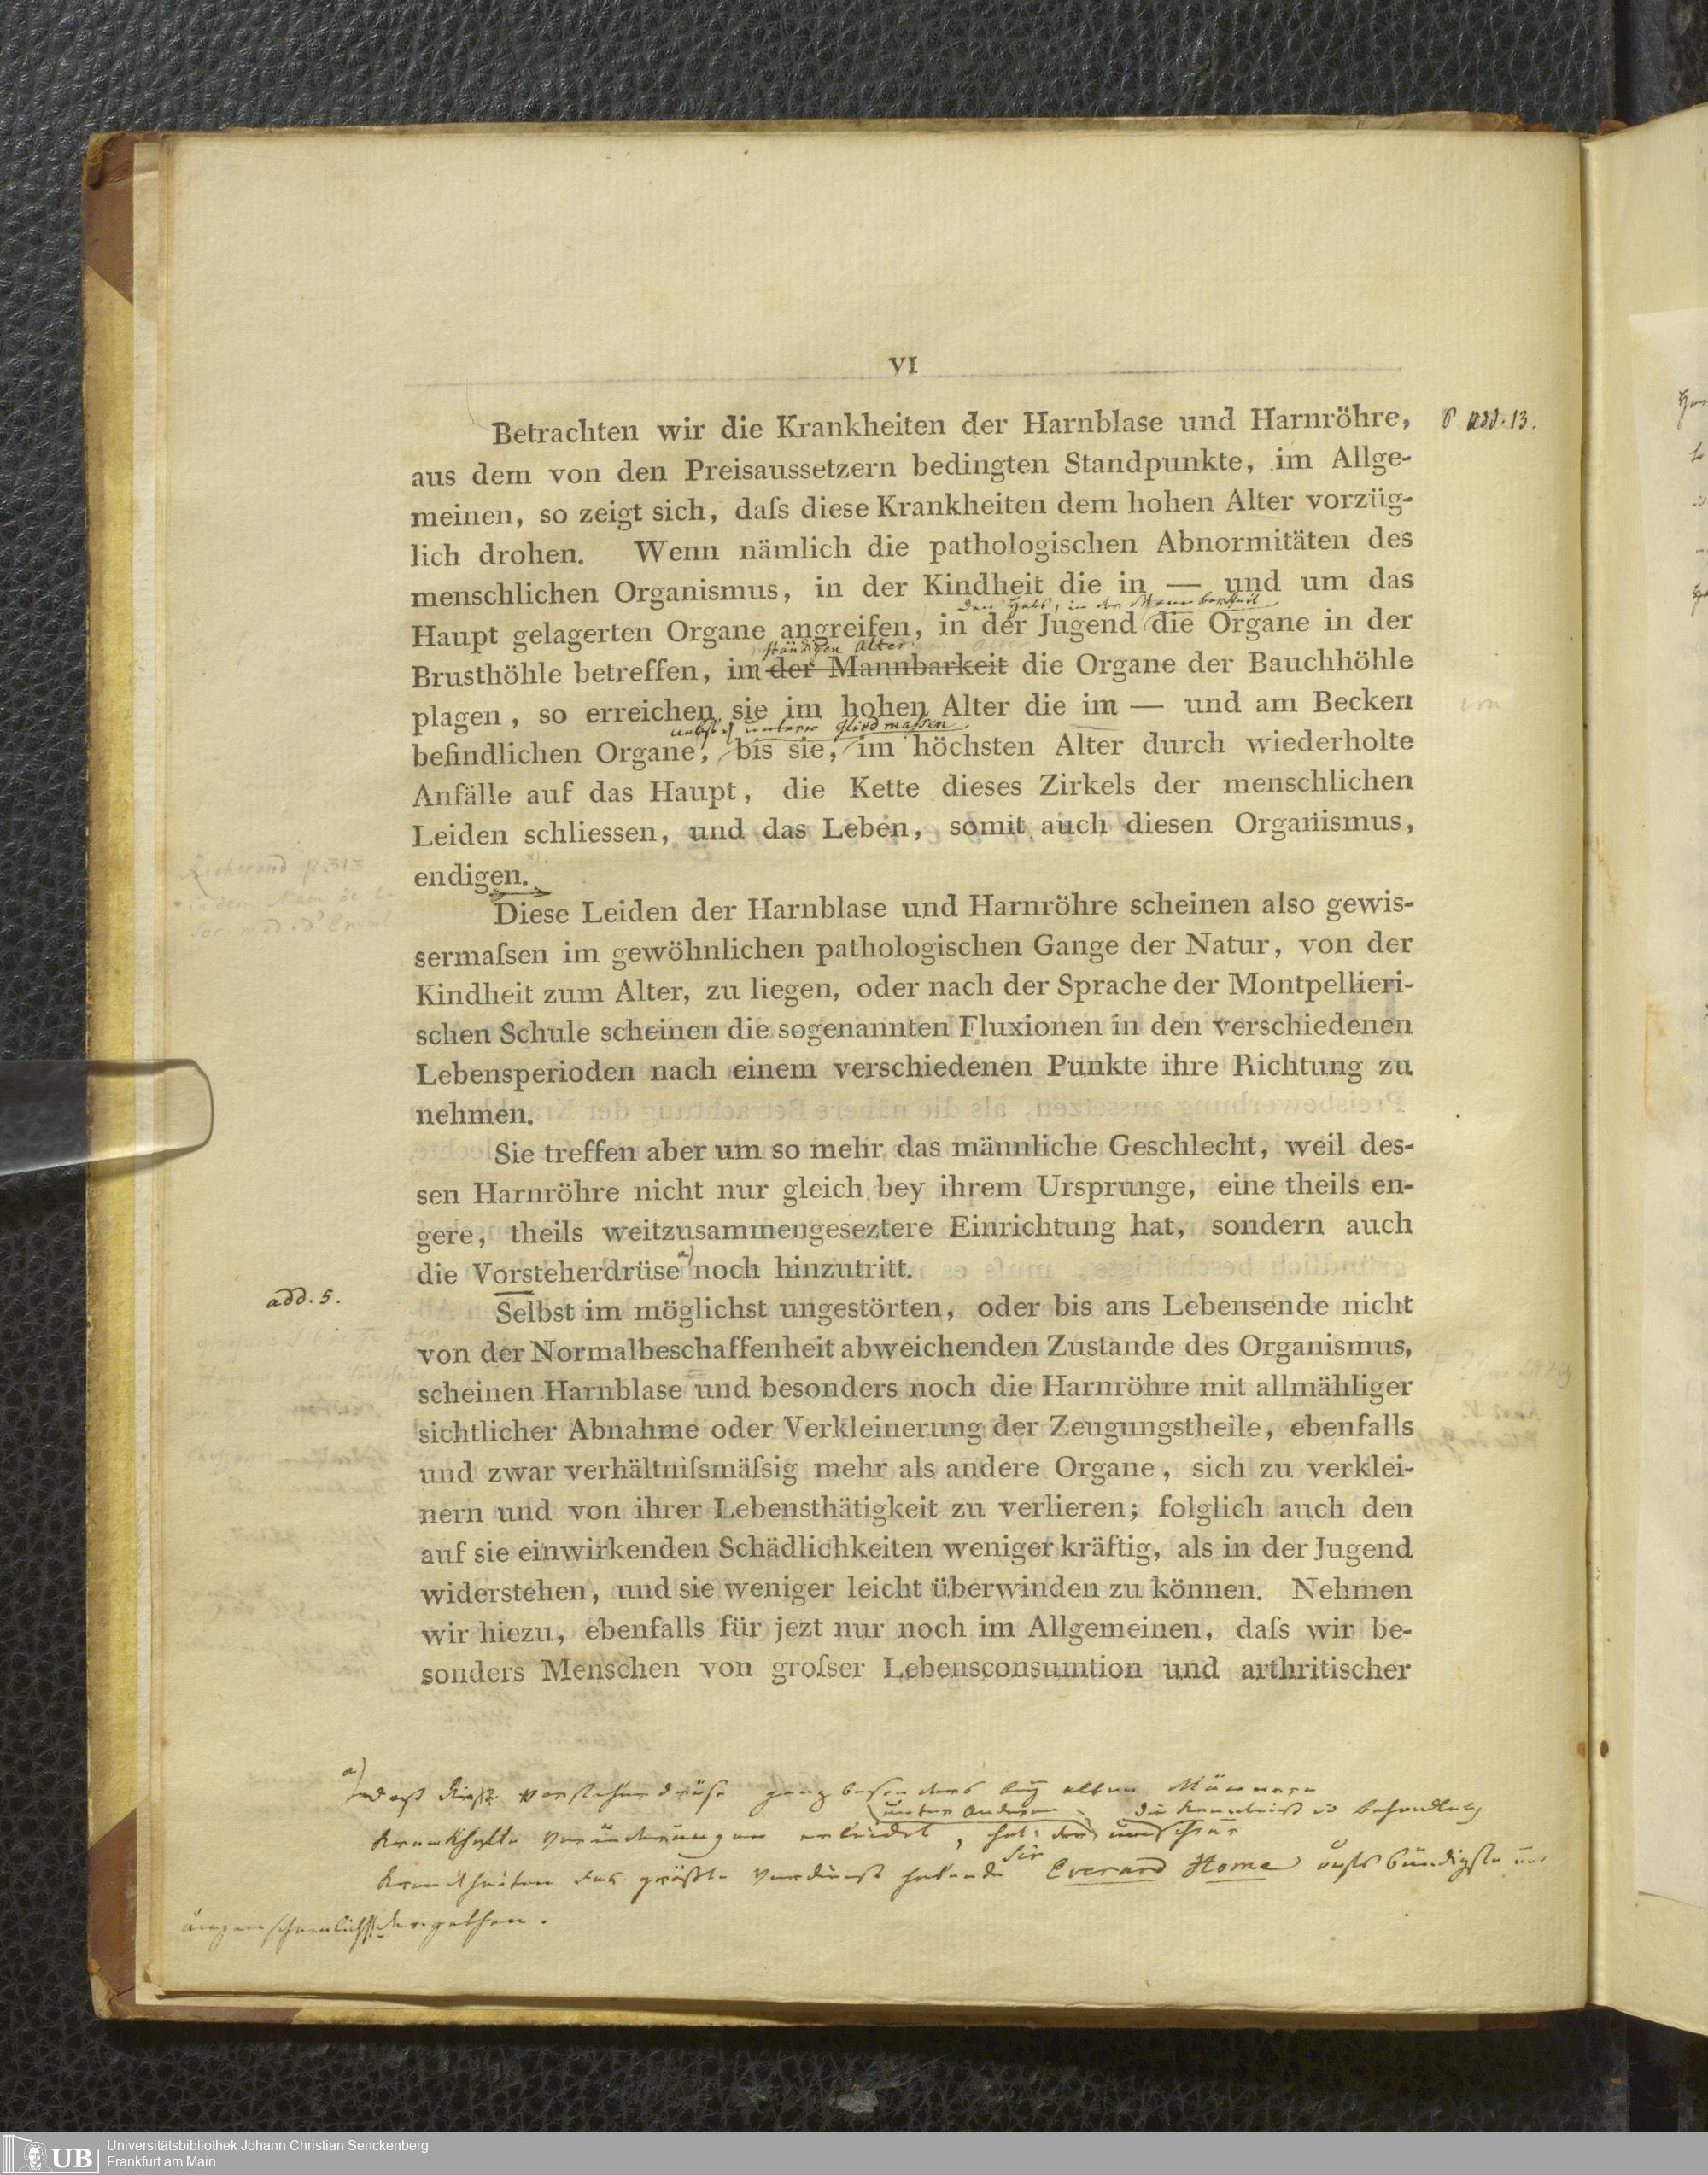 VI
Betrachten wir die Krankheiten der Harnblase und Harnröhre,
add. 13.
aus dem von den Preisaussetzern bedingten Standpunkte, im Allge-
meinen, so zeigt sich, daſs diese Krankheiten dem hohen Alter vorzüg-
lich drohen. Wenn nämlich die pathologischen Abnormitäten des
menschlichen Organismus, in der Kindheit die in — und um das
den Hals, in der Mannbarkeit
Haupt gelagerten Organe angreifen, in der Jugend die Organe in der
ständigen Alter
Brusthöhle betreffen, im der Mannbarkeit die Organe der Bauchhöhle
plagen, so erreichen sie im hohen Alter die im — und am Becken
unteren Gliedmaſsen
befindlichen Organe, bis sie, im höchsten Alter durch wiederholte
Anfälle auf das Haupt, die Kette dieses Zirkels der menschlichen
Leiden schliessen, und das Leben, somit auch diesen Organismus,
endigen.
Diese Leiden der Harnblase und Harnröhre scheinen also gewis-
sermaſsen im gewöhnlichen pathologischen Gange der Natur, von der
Kindheit zum Alter, zu liegen, oder nach der Sprache der Montpellieri-
schen Schule scheinen die sogenannten Fluxionen in den verschiedenen
Lebensperioden nach einem verschiedenen Punkte ihre Richtung zu
nehmen.
Sie treffen aber um so mehr das männliche Geschlecht, weil des-
sen Harnröhre nicht nur gleich bey ihrem Ursprunge, eine theils en-
gere, theils weitzusammengeseztere Einrichtung hat, sondern auch
die Vorsteherdrüse a) noch hinzutritt.
add. 5.
Selbst im möglichst ungestörten, oder bis ans Lebensende nicht
von der Normalbeschaffenheit abweichenden Zustande des Organismus,
scheinen Harnblase und besonders noch die Harnröhre mit allmähliger
sichtlicher Abnahme oder Verkleinerung der Zeugungstheile, ebenfalls
und zwar verhältniſsmäſsig mehr als andere Organe, sich zu verklei-
nern und von ihrer Lebensthätigkeit zu verlieren; folglich auch den
auf sie einwirkenden Schädlichkeiten weniger kräftig, als in der Jugend
widerstehen, und sie weniger leicht überwinden zu können. Nehmen
wir hiezu, ebenfalls für jezt nur noch im Allgemeinen, daſs wir be-
sonders Menschen von groſser Lebensconsumtion und arthritischer
a) daß diese Vorsteherdrüse ganz besonders bey alten Männern
unter anderen die Kenntniß
krankhafte Veränderungen erleidet, hat der um
Krankheiten das größte Verdienst habende Sir Everard Home aufs bündigste
augenscheinlichste dargethan.